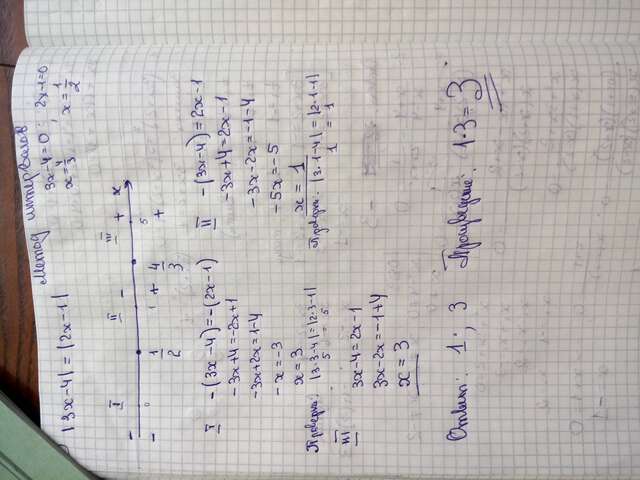 |3x-4| = |2x-1| Метод интервалов
3x-4=0; 2x-1=0
x=4/3 x=1/2
I II III
- - + + x
0 1 5
- 1/2 + 4/3 +
I -(3x-4)=-(2x-1)
-3x+4=-2x+1
-3x+2x=1-4
-x=-3
x=3
Проверка: |3·3-4|=|2·3-1|
5 = 5
II -(3x-4)=2x-1
-3x+4=2x-1
-3x-2x=-1-4
-5x=-5
x=1
Проверка: |3·1-4|=|2·1-1|
1 = 1
III
3x-4=2x-1
3x-2x=-1+4
x=3
Ответ: 1; 3 Произведение: 1·3=3